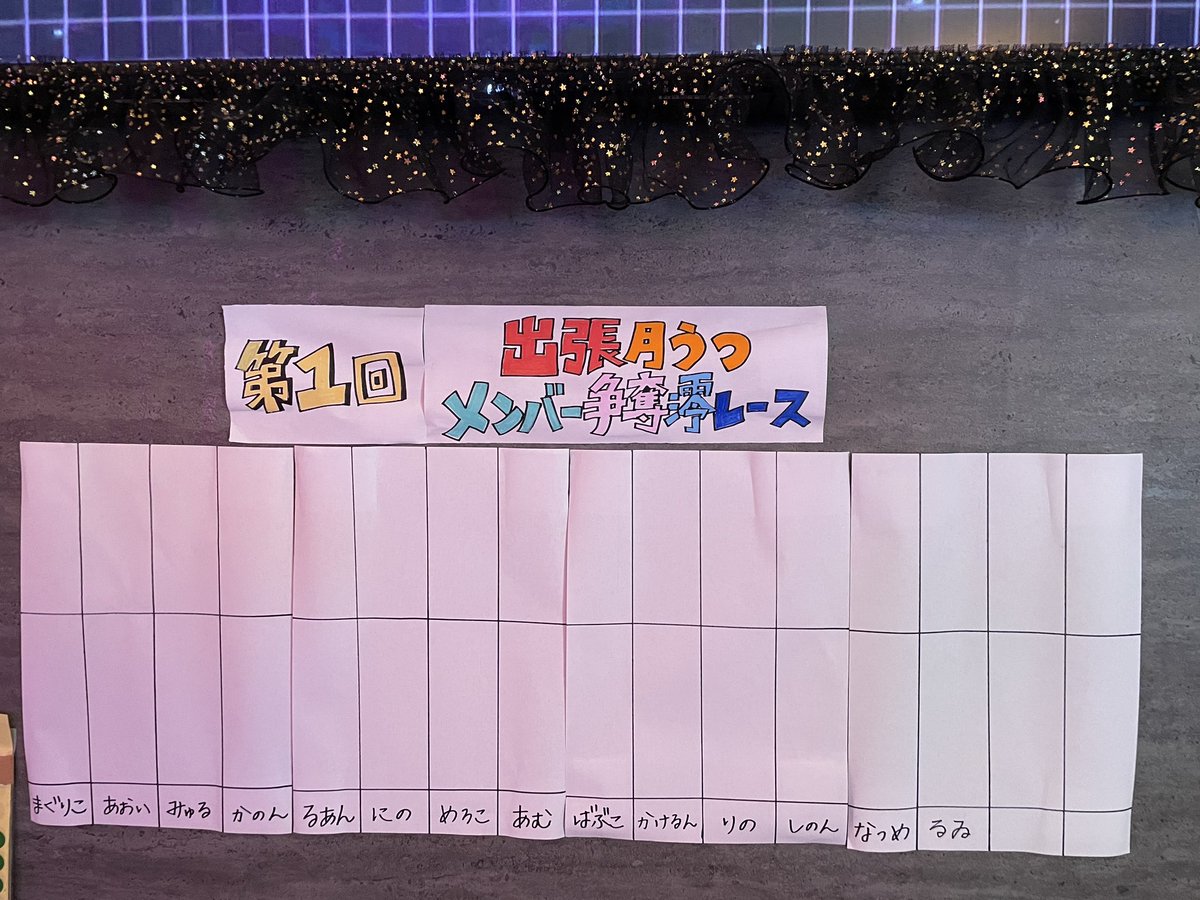 第1回
出張月うつ
メンバー争奪澪レース
まぐりこ あおい みゅる かのん るあん にの めろこ あむ ばぶこ かけるん りの しのん なつめ るゐ